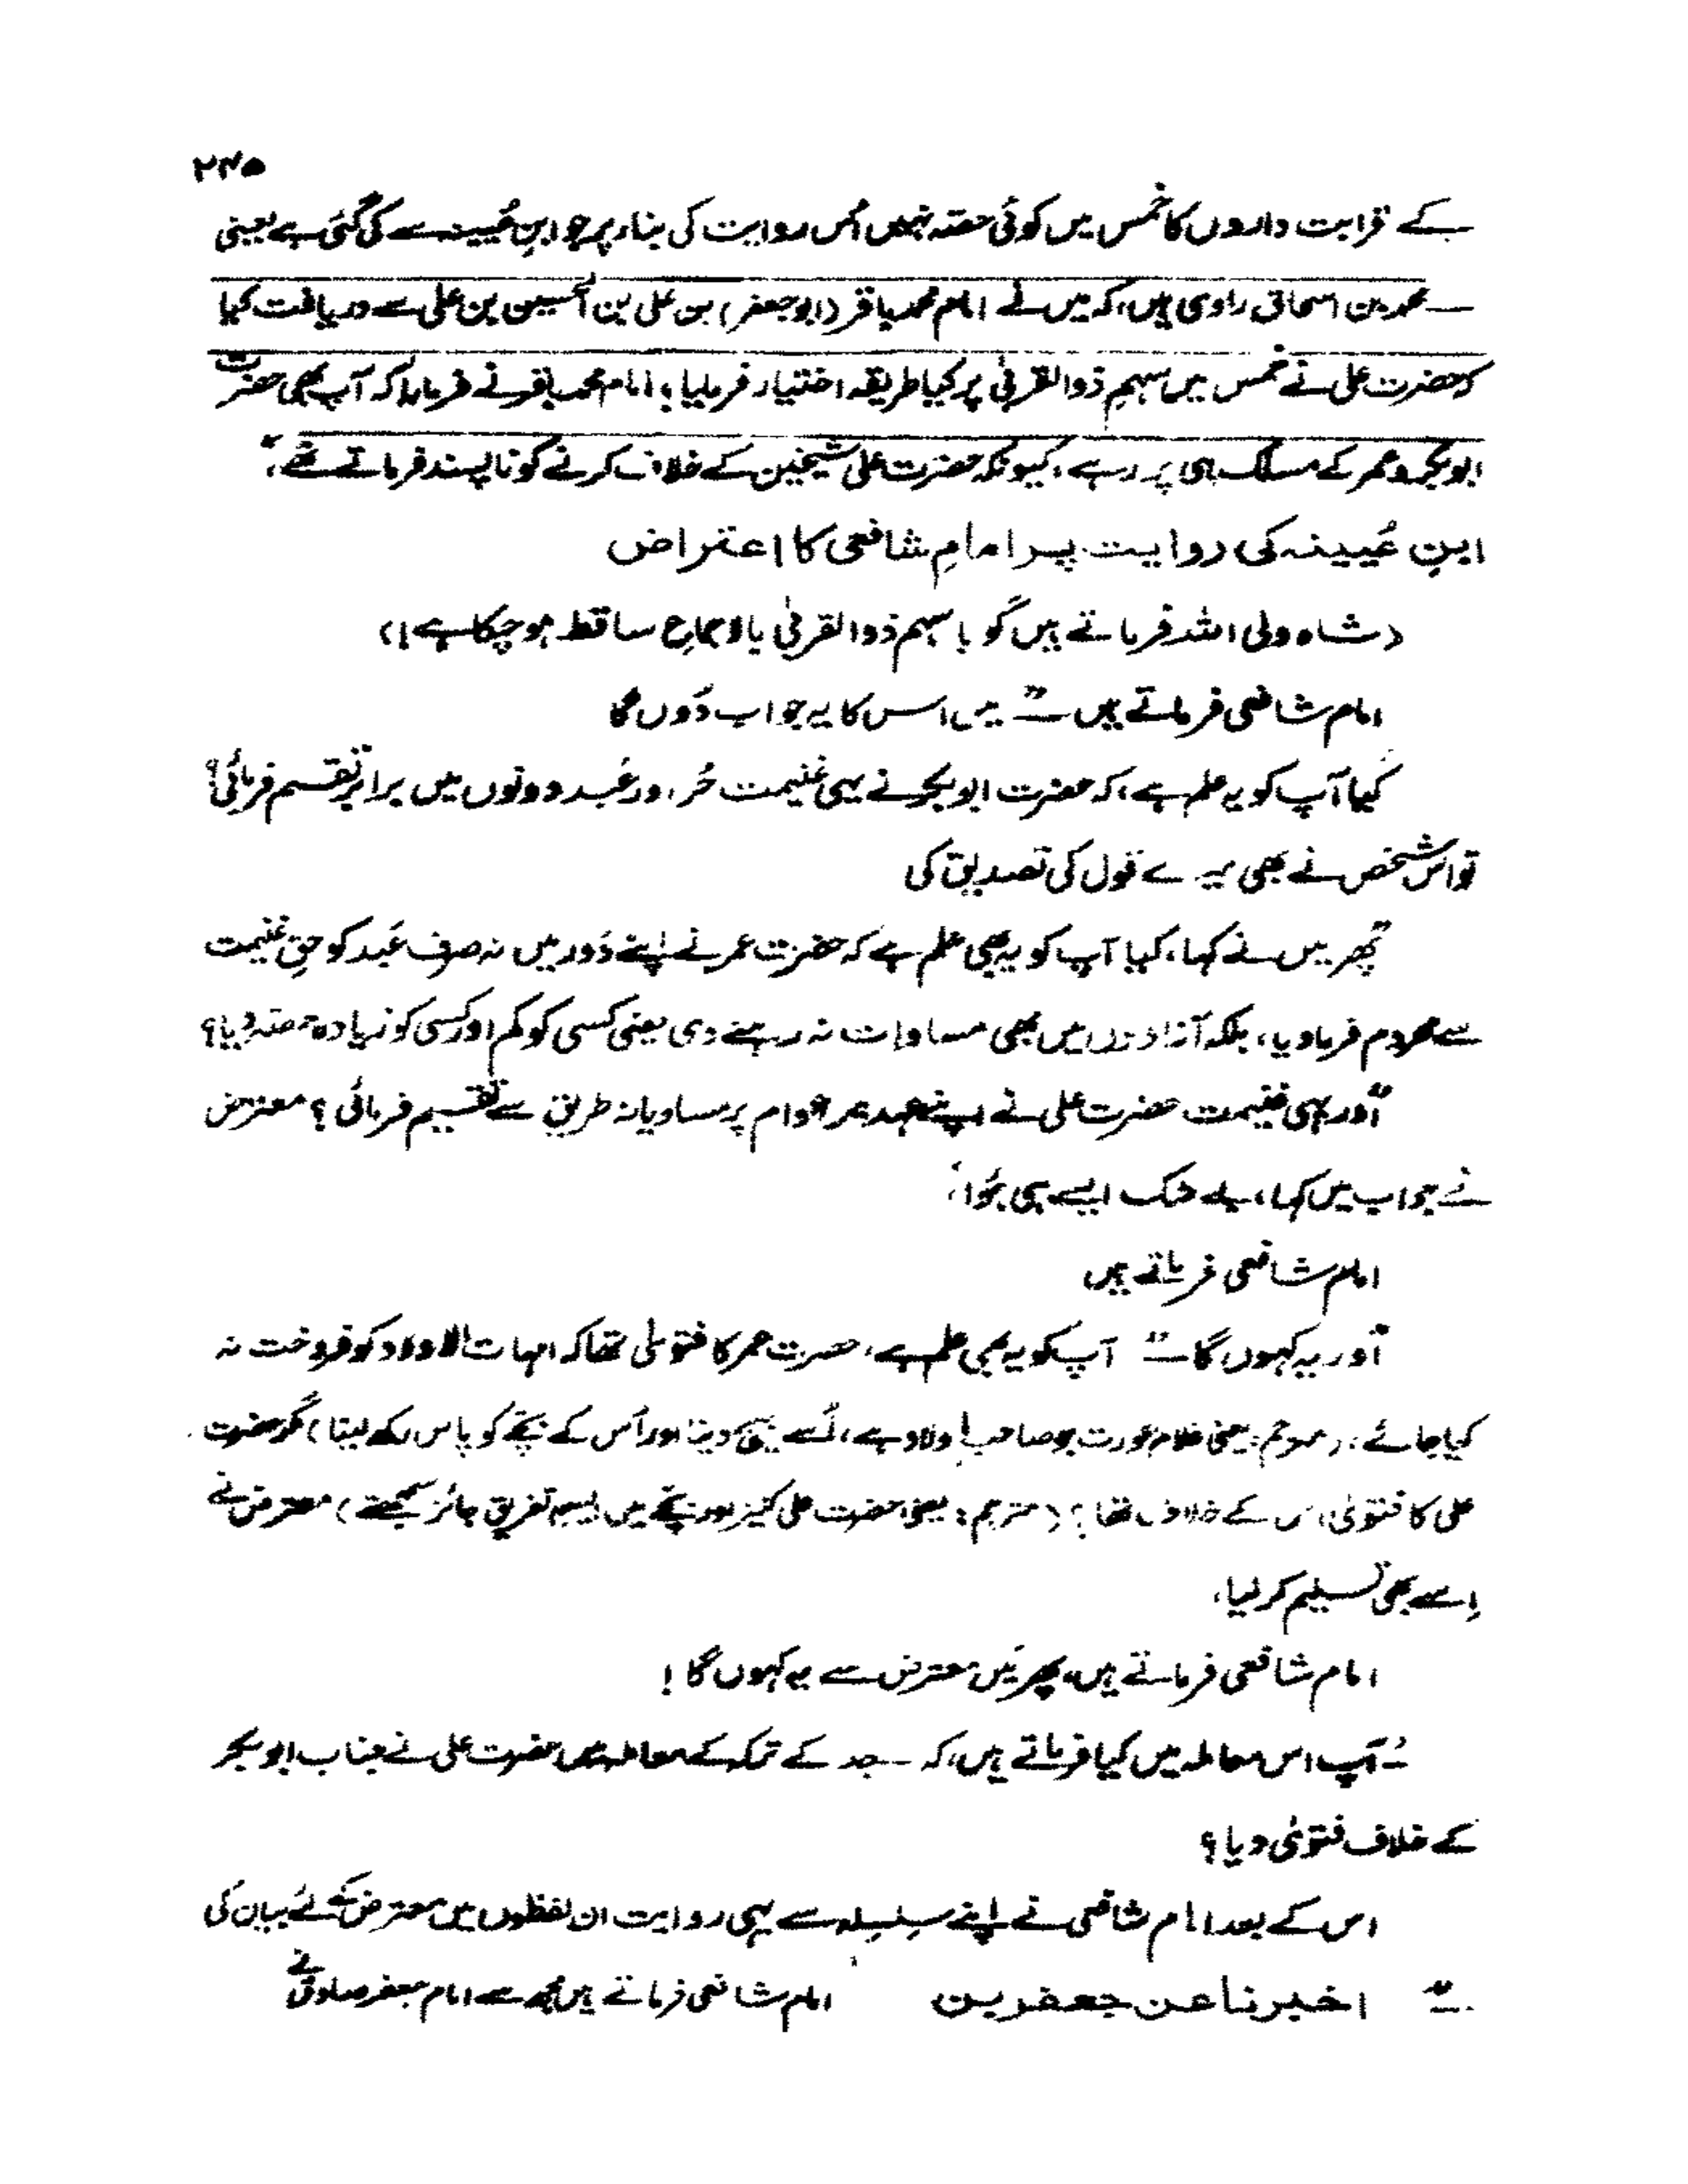 ۲۴۵
کے قرابت داروں کا خمس میں کوئی حصّہ نہیں اُس روایت کی بناء پر جو ابنِ عُیینہ سے کی گئی ہے یعنی
— محمد بن اسحاق راوی ہیں، کہ میں نے امام محمد باقر (ابو جعفر) بن علی بن الحسین بن علی سے دریافت کیا
کہ حضرت علی نے خمس میں سہم ذوالقربیٰ پر کیا طریقہ اختیار فرمایا؟ امام محمد باقر نے فرمایا کہ آپ بھی حضرت
ابوبکر و عمر کے مسلک ہی پر رہے، کیونکہ حضرت علی شیخین کے خلاف کرنے کو ناپسند فرماتے تھے،"
ابنِ عُیینہ کی روایت پر امامِ شافعی کا اعتراض
(شاہ ولی اللہ فرماتے ہیں گویا سہم ذوالقربیٰ بالاجماع ساقط ہو چکا ہے!)
امام شافعی فرماتے ہیں —" میں اس کا یہ جواب دُوں گا
کیا آپ کو یہ علم ہے، کہ حضرت ابوبکر نے یہی غنیمت حُر اور عَبد دونوں میں برابر تقسیم فرمائی؟
تو اس شخص نے بھی میرے قول کی تصدیق کی
پھر میں نے کہا، کیا آپ کو یہ بھی علم ہے کہ حضرت عمر نے اپنے دَور میں نہ صرف عَبد کو حقِ غنیمت
سے محروم فرما دیا، بلکہ آزادوں میں بھی مساوات نہ رہنے دی یعنی کسی کو کم اور کسی کو زیادہ حصّہ دیا؟
"اور یہی غنیمت حضرت علی نے اپنے عہد میں عوام پر مساویانہ طریق سے تقسیم فرمائی؟ معترض
نے جواب میں کہا، بے شک ایسے ہی ہُوا،
امام شافعی فرماتے ہیں
"اور یہ کہوں گا —" آپ کو یہ بھی علم ہے، حضرت عمر کا فتویٰ تھا کہ امہات الاولاد کو فروخت نہ
کیا جائے، (مترجم: یعنی غلام عورت جو صاحبِ اولاد ہے، اُسے بیچ دینا اور اُس کے بچّے کو پاس رکھ لینا) مگر حضرت
علی کا فتویٰ اس کے خلاف تھا؟ (مترجم: یعنی حضرت علی کنیز اور بچّے میں ایسی تفریق جائز سمجھتے) معترض نے
اِسے بھی تسلیم کر لیا،
امام شافعی فرماتے ہیں، پھر مَیں معترض سے یہ کہوں گا!
—"آپ اس معاملہ میں کیا فرماتے ہیں، کہ — جد کے ترکہ کے معاملہ میں حضرت علی نے جناب ابوبکر
کے خلاف فتویٰ دیا؟
اس کے بعد امام شافعی نے اپنے سِلسِلہ سے یہی روایت ان لفظوں میں معترض کے لئے بیان کی
—" اخبرنا عن جعفر بن امام شافعی فرماتے ہیں مجھ سے امام جعفر صادق نے